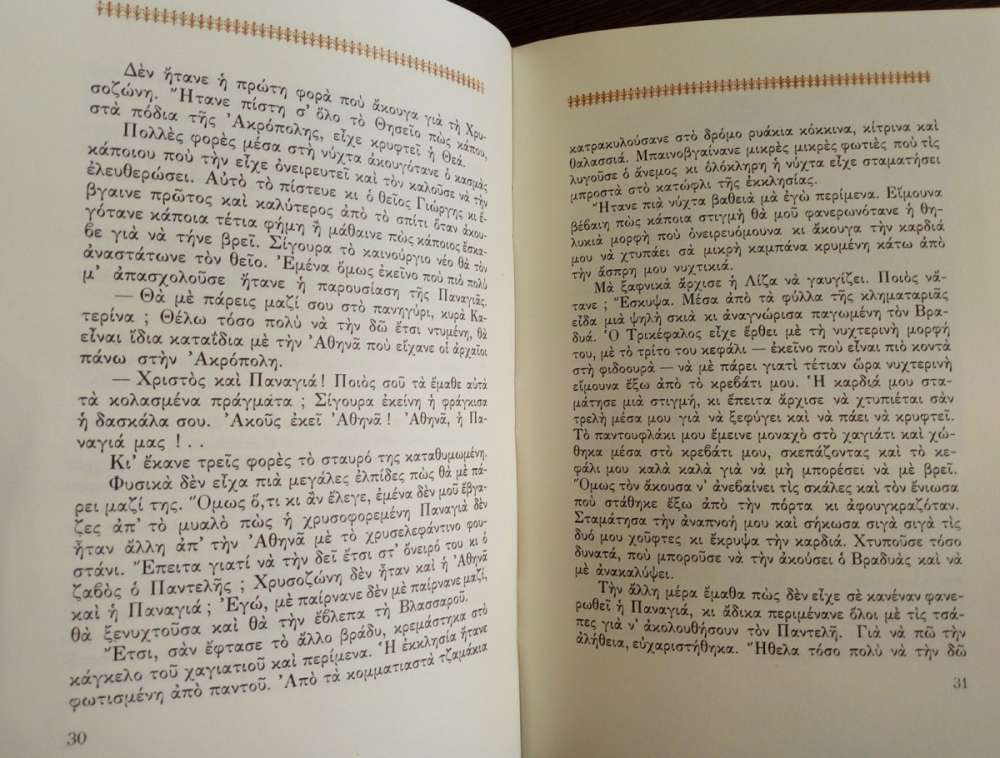 Δὲν ἤτανε ἡ πρώτη φορὰ ποὺ ἄκουγα γιὰ τὴ Χρυ-
σοζώνη. Ἤτανε πίστη σ’ ὅλο τὸ Θησεῖο πὼς κάπου,
στὰ πόδια τῆς Ἀκρόπολης, εἶχε κρυφτεῖ ἡ Θεά.
Πολλὲς φορὲς μέσα στὴ νύχτα ἀκουγότανε ὁ κασμὰς
κάποιου ποὺ τὴν εἶχε ὀνειρευτεῖ καὶ τὸν καλοῦσε νὰ τὴν
ἐλευθερώσει. Αὐτὸ τὸ πίστευε κι ὁ θεῖος Γιώργης κι ἔ-
βγαινε πρῶτος καὶ καλύτερος ἀπὸ τὸ σπίτι ὅταν ἀκου-
γότανε κάποια τέτια φήμη ἢ μάθαινε πὼς κάποιος ἔσκα-
βε γιὰ νὰ τήνε βρεῖ. Σίγουρα τὸ καινούργιο νέο θὰ τὸν
ἀναστάτωνε τὸν θεῖο. Ἐμένα ὅμως ἐκεῖνο ποὺ πιὸ πολὺ
μ’ ἀπασχολοῦσε ἤτανε ἡ παρουσίαση τῆς Παναγιᾶς.
— Θὰ μὲ πάρεις μαζί σου στὸ πανηγύρι, κυρὰ Κα-
τερίνα ; Θέλω τόσο πολὺ νὰ τὴν δῶ ἔτσι ντυμένη, θὰ
εἶναι ἴδια καταΐδια μὲ τὴν Ἀθηνᾶ ποὺ εἴχανε οἱ ἀρχαῖοι
πάνω στὴν Ἀκρόπολη.
— Χριστὸς καὶ Παναγιά! Ποιὸς σοῦ τὰ ἔμαθε αὐτὰ
τὰ κολασμένα πράγματα ; Σίγουρα ἐκείνη ἡ φράγκισα
ἡ δασκάλα σου. Ἀκοῦς ἐκεῖ Ἀθηνᾶ ! Ἀθηνᾶ, ἡ Πα-
ναγιά μας ! . .
Κι’ ἔκανε τρεῖς φορὲς τὸ σταυρό της καταθυμωμένη.
Φυσικὰ δὲν εἶχα πιὰ μεγάλες ἐλπίδες πὼς θὰ μὲ πά-
ρει μαζί της. Ὅμως ὅ,τι κι ἂν ἔλεγε, ἐμένα δὲν μοῦ ἔβγα-
ζες ἀπ’ τὸ μυαλὸ πὼς ἡ χρυσοφορεμένη Παναγιὰ δὲν
ἦταν ἄλλη ἀπ’ τὴν Ἀθηνᾶ μὲ τὸ χρυσελεφάντινο φου-
στάνι. Ἔπειτα γιατί νὰ τὴν δεῖ ἔτσι στ’ ὄνειρό του κι ὁ
ζαβὸς ὁ Παντελῆς ; Χρυσοζώνη δὲν ἦταν καὶ ἡ Ἀθηνᾶ
καὶ ἡ Παναγιά ; Ἐγώ, μὲ παίρνανε δὲν μὲ παίρνανε μαζί,
θὰ ξενυχτοῦσα καὶ θὰ τὴν ἔβλεπα τὴ Βλασσαροῦ.
Ἔτσι, σὰν ἔφτασε τὸ ἄλλο βράδυ, κρεμάστηκα στὸ
κάγκελο τοῦ χαγιατιοῦ καὶ περίμενα. Ἡ ἐκκλησία ἤτανε
φωτισμένη ἀπὸ παντοῦ. Ἀπὸ τὰ κομματιαστὰ τζαμάκια
30
κατρακυλούσανε στὸ δρόμο ρυάκια κόκκινα, κίτρινα καὶ
θαλασσιά. Μπαινοβγαίνανε μικρὲς μικρὲς φωτιὲς ποὺ τὶς
λυγοῦσε ὁ ἄνεμος κι ὁλόκληρη ἡ νύχτα εἶχε σταματήσει
μπροστὰ στὸ κατώφλι τῆς ἐκκλησίας.
Ἤτανε πιὰ νύχτα βαθειὰ μὰ ἐγὼ περίμενα. Εἴμουνα
βέβαιη πὼς κάποια στιγμὴ θὰ μοῦ φανερωνότανε ἡ θη-
λυκιὰ μορφὴ ποὺ ὀνειρευόμουνα κι ἄκουγα τὴν καρδιά
μου νὰ χτυπάει σὰ μικρὴ καμπάνα κρυμένη κάτω ἀπὸ
τὴν ἄσπρη μου νυχτικιά.
Μὰ ξαφνικὰ ἄρχισε ἡ Λίζα νὰ γαυγίζει. Ποιὸς νἄ-
τανε ; Ἔσκυψα. Μέσα ἀπὸ τὰ φύλλα τῆς κληματαριᾶς
εἶδα μιὰ ψηλὴ σκιὰ κι ἀναγνώρισα παγωμένη τὸν Βρα-
δυά. Ὁ Τρικέφαλος εἶχε ἔρθει μὲ τὴ νυχτερινὴ μορφή
του, μὲ τὸ τρίτο του κεφάλι — ἐκεῖνο ποὺ εἶναι πιὸ κοντὰ
στὴ φιδουρά — νὰ μὲ πάρει γιατὶ τέτιαν ὥρα νυχτερινὴ
εἴμουνα ἔξω ἀπὸ τὸ κρεβάτι μου. Ἡ καρδιά μου στα-
μάτησε μιὰ στιγμή, κι ἔπειτα ἄρχισε νὰ χτυπιέται σὰν
τρελὴ μέσα μου γιὰ νὰ ξεφύγει καὶ νὰ πάει νὰ κρυφτεῖ.
Τὸ παντουφλάκι μου ἔμεινε μοναχὸ στὸ χαγιάτι καὶ χώ-
θηκα μέσα στὸ κρεβάτι μου, σκεπάζοντας καὶ τὸ κε-
φάλι μου καλὰ καλὰ γιὰ νὰ μὴ μπορέσει νὰ μὲ βρεῖ.
Ὅμως τὸν ἄκουσα ν’ ἀνεβαίνει τὶς σκάλες καὶ τὸν ἔνιωσα
ποὺ στάθηκε ἔξω ἀπὸ τὴν πόρτα κι ἀφουγκραζόταν.
Σταμάτησα τὴν ἀναπνοή μου καὶ σήκωσα σιγὰ σιγὰ τὶς
δυό μου χοῦφτες κι ἔκρυψα τὴν καρδιά. Χτυποῦσε τόσο
δυνατά, ποὺ μποροῦσε νὰ τὴν ἀκούσει ὁ Βραδυὰς καὶ νὰ
μὲ ἀνακαλύψει.
Τὴν ἄλλη μέρα ἔμαθα πὼς δὲν εἶχε σὲ κανέναν φανε-
ρωθεῖ ἡ Παναγιά, κι ἄδικα περιμένανε ὅλοι μὲ τὶς τσά-
πες γιὰ ν’ ἀκολουθήσουν τὸν Παντελῆ. Γιὰ νὰ πῶ τὴν
ἀλήθεια, εὐχαριστήθηκα. Ἤθελα τόσο πολὺ νὰ τὴν δῶ
31